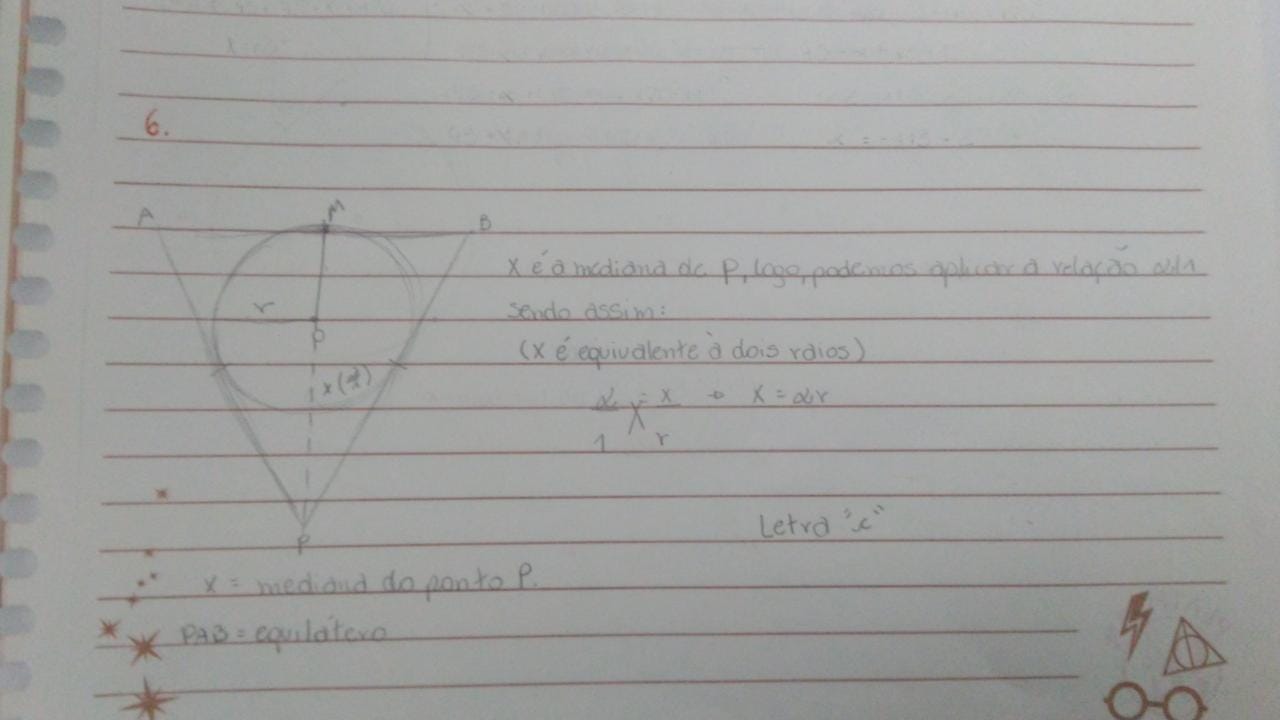 6.
A M B
x é a mediana de P, logo, podemos aplicar a relação 2/1
sendo assim:
r
O
(x é equivalente à dois raios)
x (2/1)
2/1 = x/r → x = 2r
P
Letra "c"
x = mediana do ponto P.
PAB = equilátero